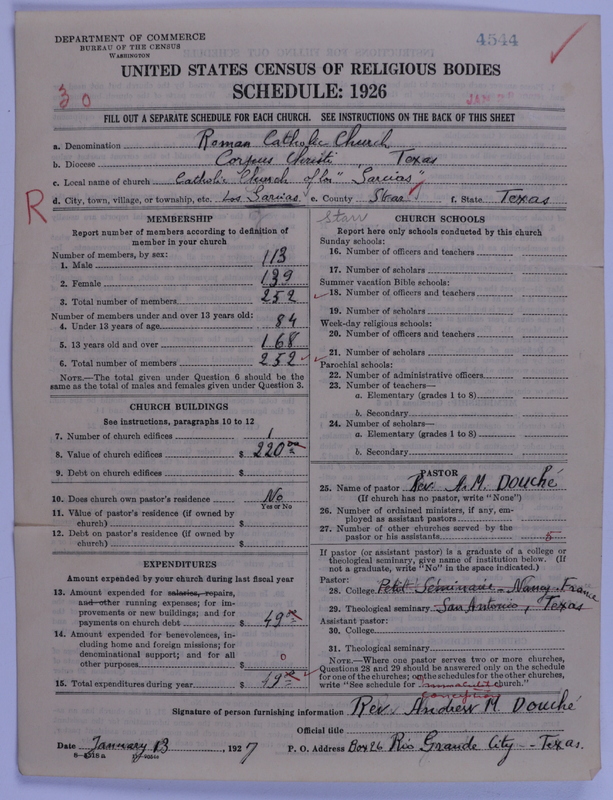 DEPARTMENT OF COMMERCE
BUREAU OF THE CENSUS
WASHINGTON
4544
UNITED STATES CENSUS OF RELIGIOUS BODIES
SCHEDULE: 1926
30
JAN
FILL OUT A SEPARATE SCHEDULE FOR EACH CHURCH. SEE INSTRUCTIONS ON THE BACK OF THIS SHEET
a. Denomination Roman Catholic Church
b. Diocese Corpus Christi, Texas
c. Local name of church Catholic Church of los "Sarias"
R
d. City, town, village, or township, etc. Los Sarias e. County Starr f. State Texas
Starr
MEMBERSHIP
Report number of members according to definition of
member in your church
Number of members, by sex:
1. Male 113
2. Female 139
3. Total number of members 252
Number of members under and over 13 years old:
4. Under 13 years of age 84
5. 13 years old and over 168
6. Total number of members 252
NOTE.—The total given under Question 6 should be the
same as the total of males and females given under Question 3.
CHURCH BUILDINGS
See instructions, paragraphs 10 to 12
7. Number of church edifices 1
8. Value of church edifices $ 220 00
9. Debt on church edifices $
10. Does church own pastor's residence No
Yes or No
11. Value of pastor's residence (if owned by
church) $
12. Debt on pastor's residence (if owned by
church) $
EXPENDITURES
Amount expended by your church during last fiscal year
13. Amount expended for salaries, repairs,
and other running expenses; for im-
provements or new buildings; and for
payments on church debt $ 49
14. Amount expended for benevolences, in-
cluding home and foreign missions; for
denominational support; and for all
other purposes $ 0
15. Total expenditures during year $ 49
CHURCH SCHOOLS
Report here only schools conducted by this church
Sunday schools:
16. Number of officers and teachers
17. Number of scholars
Summer vacation Bible schools:
18. Number of officers and teachers
19. Number of scholars
Week-day religious schools:
20. Number of officers and teachers
21. Number of scholars
Parochial schools:
22. Number of administrative officers
23. Number of teachers—
a. Elementary (grades 1 to 8)
b. Secondary
24. Number of scholars—
a. Elementary (grades 1 to 8)
b. Secondary
PASTOR
25. Name of pastor Rev. A. M. Douché
(If church has no pastor, write "None")
26. Number of ordained ministers, if any, em-
ployed as assistant pastors
27. Number of other churches served by the
pastor or his assistants 5
If pastor (or assistant pastor) is a graduate of a college or
theological seminary, give name of institution below. (If
not a graduate, write "No" in the space indicated.)
Pastor:
28. College Petit Séminaire - Nancy, France
29. Theological seminary San Antonio, Texas
Assistant pastor:
30. College
31. Theological seminary
NOTE.—Where one pastor serves two or more churches,
Questions 28 and 29 should be answered only on the schedule
for one of the churches; on the schedules for the other churches,
write "See schedule for Immaculate church."
Conception
Signature of person furnishing information Rev. Andrew M. Douché
Official title
Date January 13, 1927 P. O. Address Box 26 Rio Grande City - Texas.